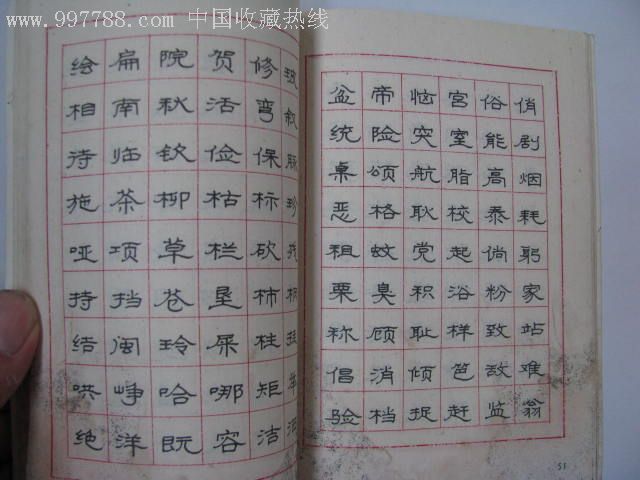 www.997788.com 中国收藏热线
叙脉珍
修弯保标砍柿柱矩洁
贺活俭枯栏垦屎哪容
院秋钦柳草苍玲哈既
扁南临茶项挡闽峥洋
绘相待施哑持结哄绝
俏剧烟耗躬家站难翁
俗能高泰倘粉致敌监
宫室脂校起浴样笆赶
恼突航耿党积耻倾捉
帝险颂格蚊臭顾消档
盆统桌恶租栗称倡验
51